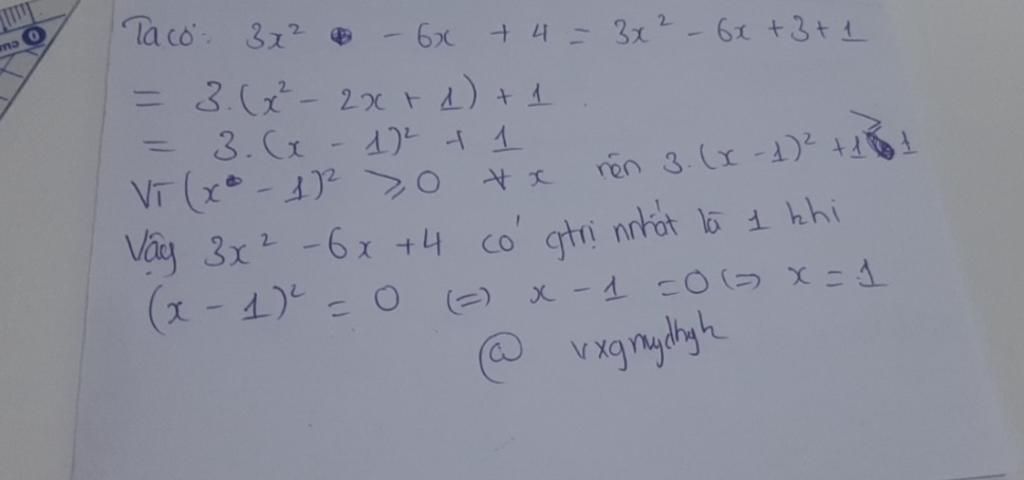 Ta có: 3x² - 6x + 4 = 3x² - 6x + 3 + 1
= 3.(x² - 2x + 1) + 1
= 3.(x - 1)² + 1
Vì (x - 1)² ⩾ 0 ∀ x nên 3.(x - 1)² + 1 ⩾ 1
Vậy 3x² - 6x + 4 có gtrị nhất là 1 khi
(x - 1)² = 0 (=) x - 1 = 0 (=) x = 1
@ vxgmydhyh